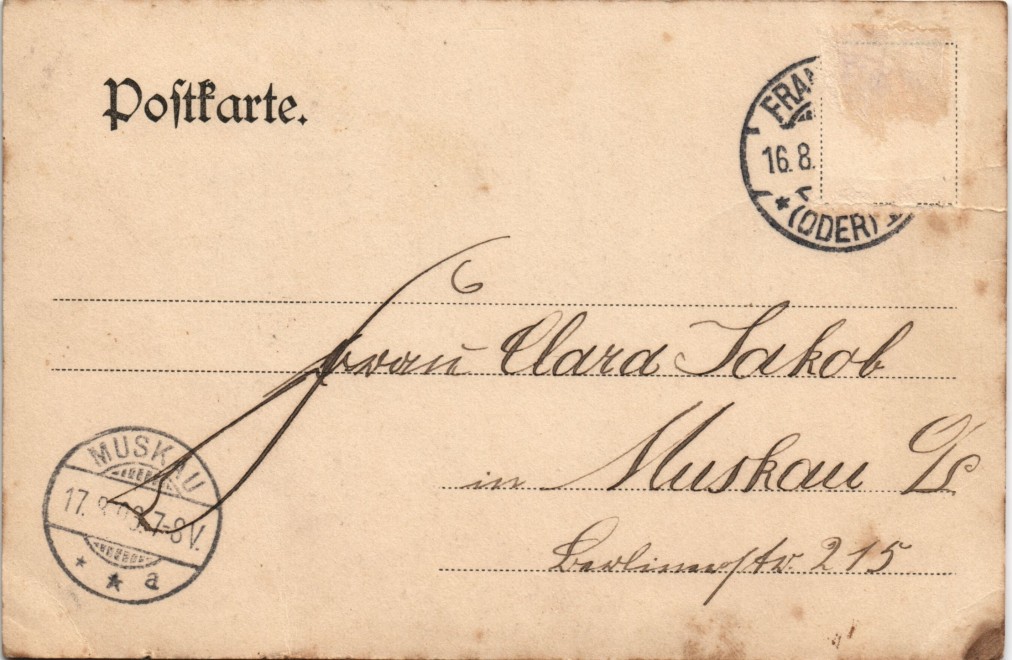 Postkarte.
FRAN
16.8.
* (ODER) 1
Frau Clara Jakob
in Muskau O/s
Berlinerstr. 215
MUSKAU
17. 7-8V.
* * a